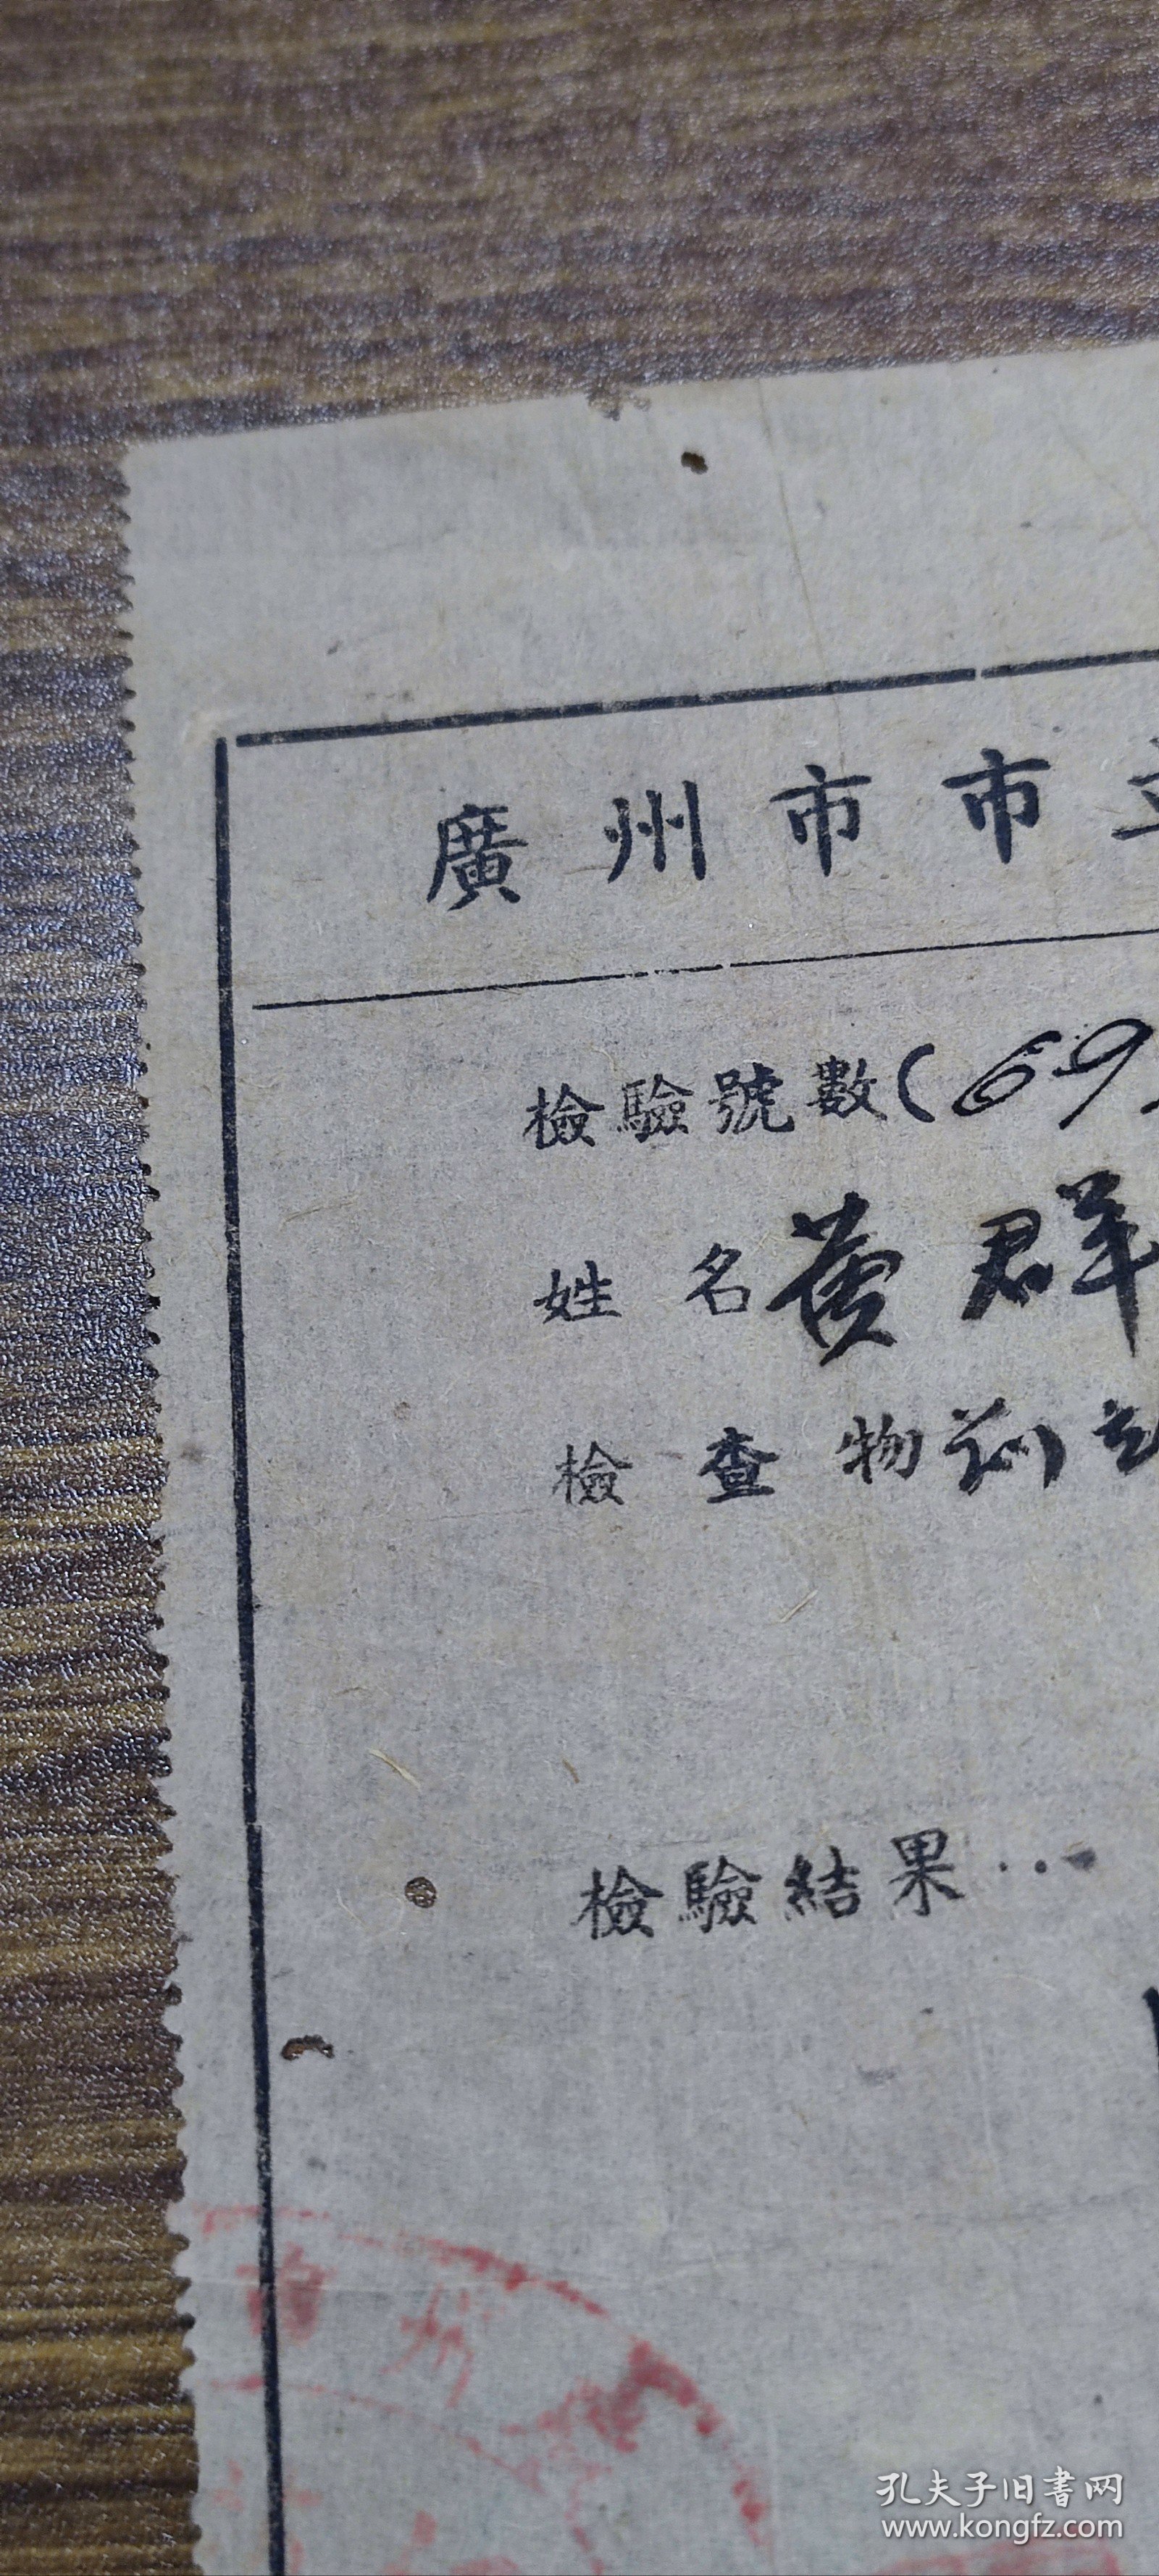 廣州市市立
檢驗號數(69
姓名黃君羊
檢查物
檢驗結果…
州
孔夫子旧書网
www.kongfz.com